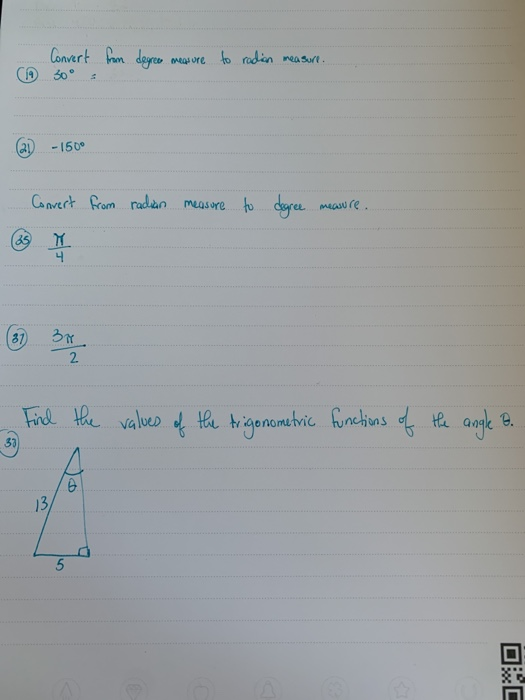 Convert from degree measure to radian measure.
19 30° =
21 -150°
Convert from radian measure to degree measure.
35 π/4
37 3π/2
Find the values of the trigonometric functions of the angle θ.
θ
13
5